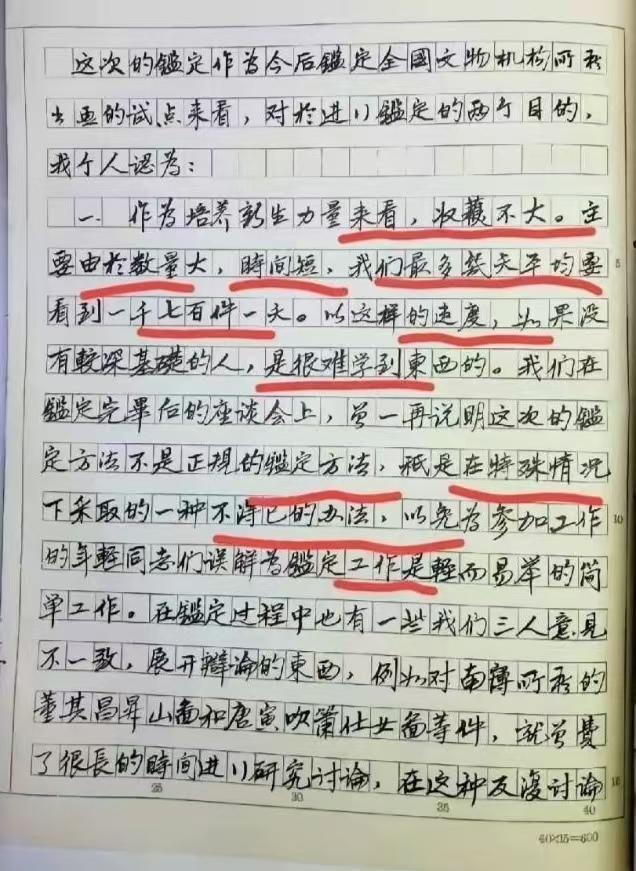 这次的鑑定作为今后鑑定全國文物机构所藏
书画的试点来看，对於进行鑑定的两个目的，
我个人認为：
一. 作为培养新生力量来看，收穫不大。主
要由於数量大，時间短，我们最多幾天平均要
看到一千七百件一天。以这样的速度，如果没
有較深基礎的人，是很难学到東西的。我们在
鑑定完畢后的座谈会上，曾一再说明这次的鑑
定方法不是正規的鑑定方法，祗是在特殊情况
下采取的一种不得已的办法，以免为参加工作
的年輕同志们误解为鑑定工作是輕而易举的简
单工作。在鑑定过程中也有一些我们三人意見
不一致，展开辯论的東西，例如对南博所藏的
董其昌昇山畵和唐寅吹箫仕女畵等件，就曾費
了很長的時间进行研究讨論，在这种反復讨論
5
10
15
25
30
35
40
40×15=600